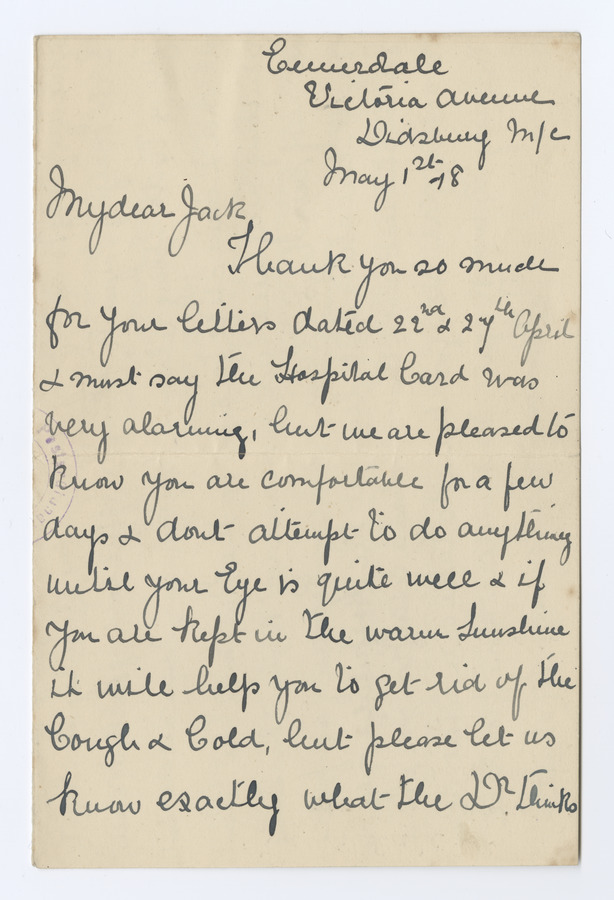 Ennerdale
Victoria Avenue
Didsbury M/c
May 1st -18
My dear Jack
Thank you so much
for your letters dated 22nd & 27th April
& must say the Hospital Card was
very alarming, but we are pleased to
know you are comfortable for a few
days & dont attempt to do anything
until your Eye is quite well & if
you are kept in the warm Sunshine
it will help you to get rid of the
Cough & Cold, but please let us
know exactly what the Dr. thinks